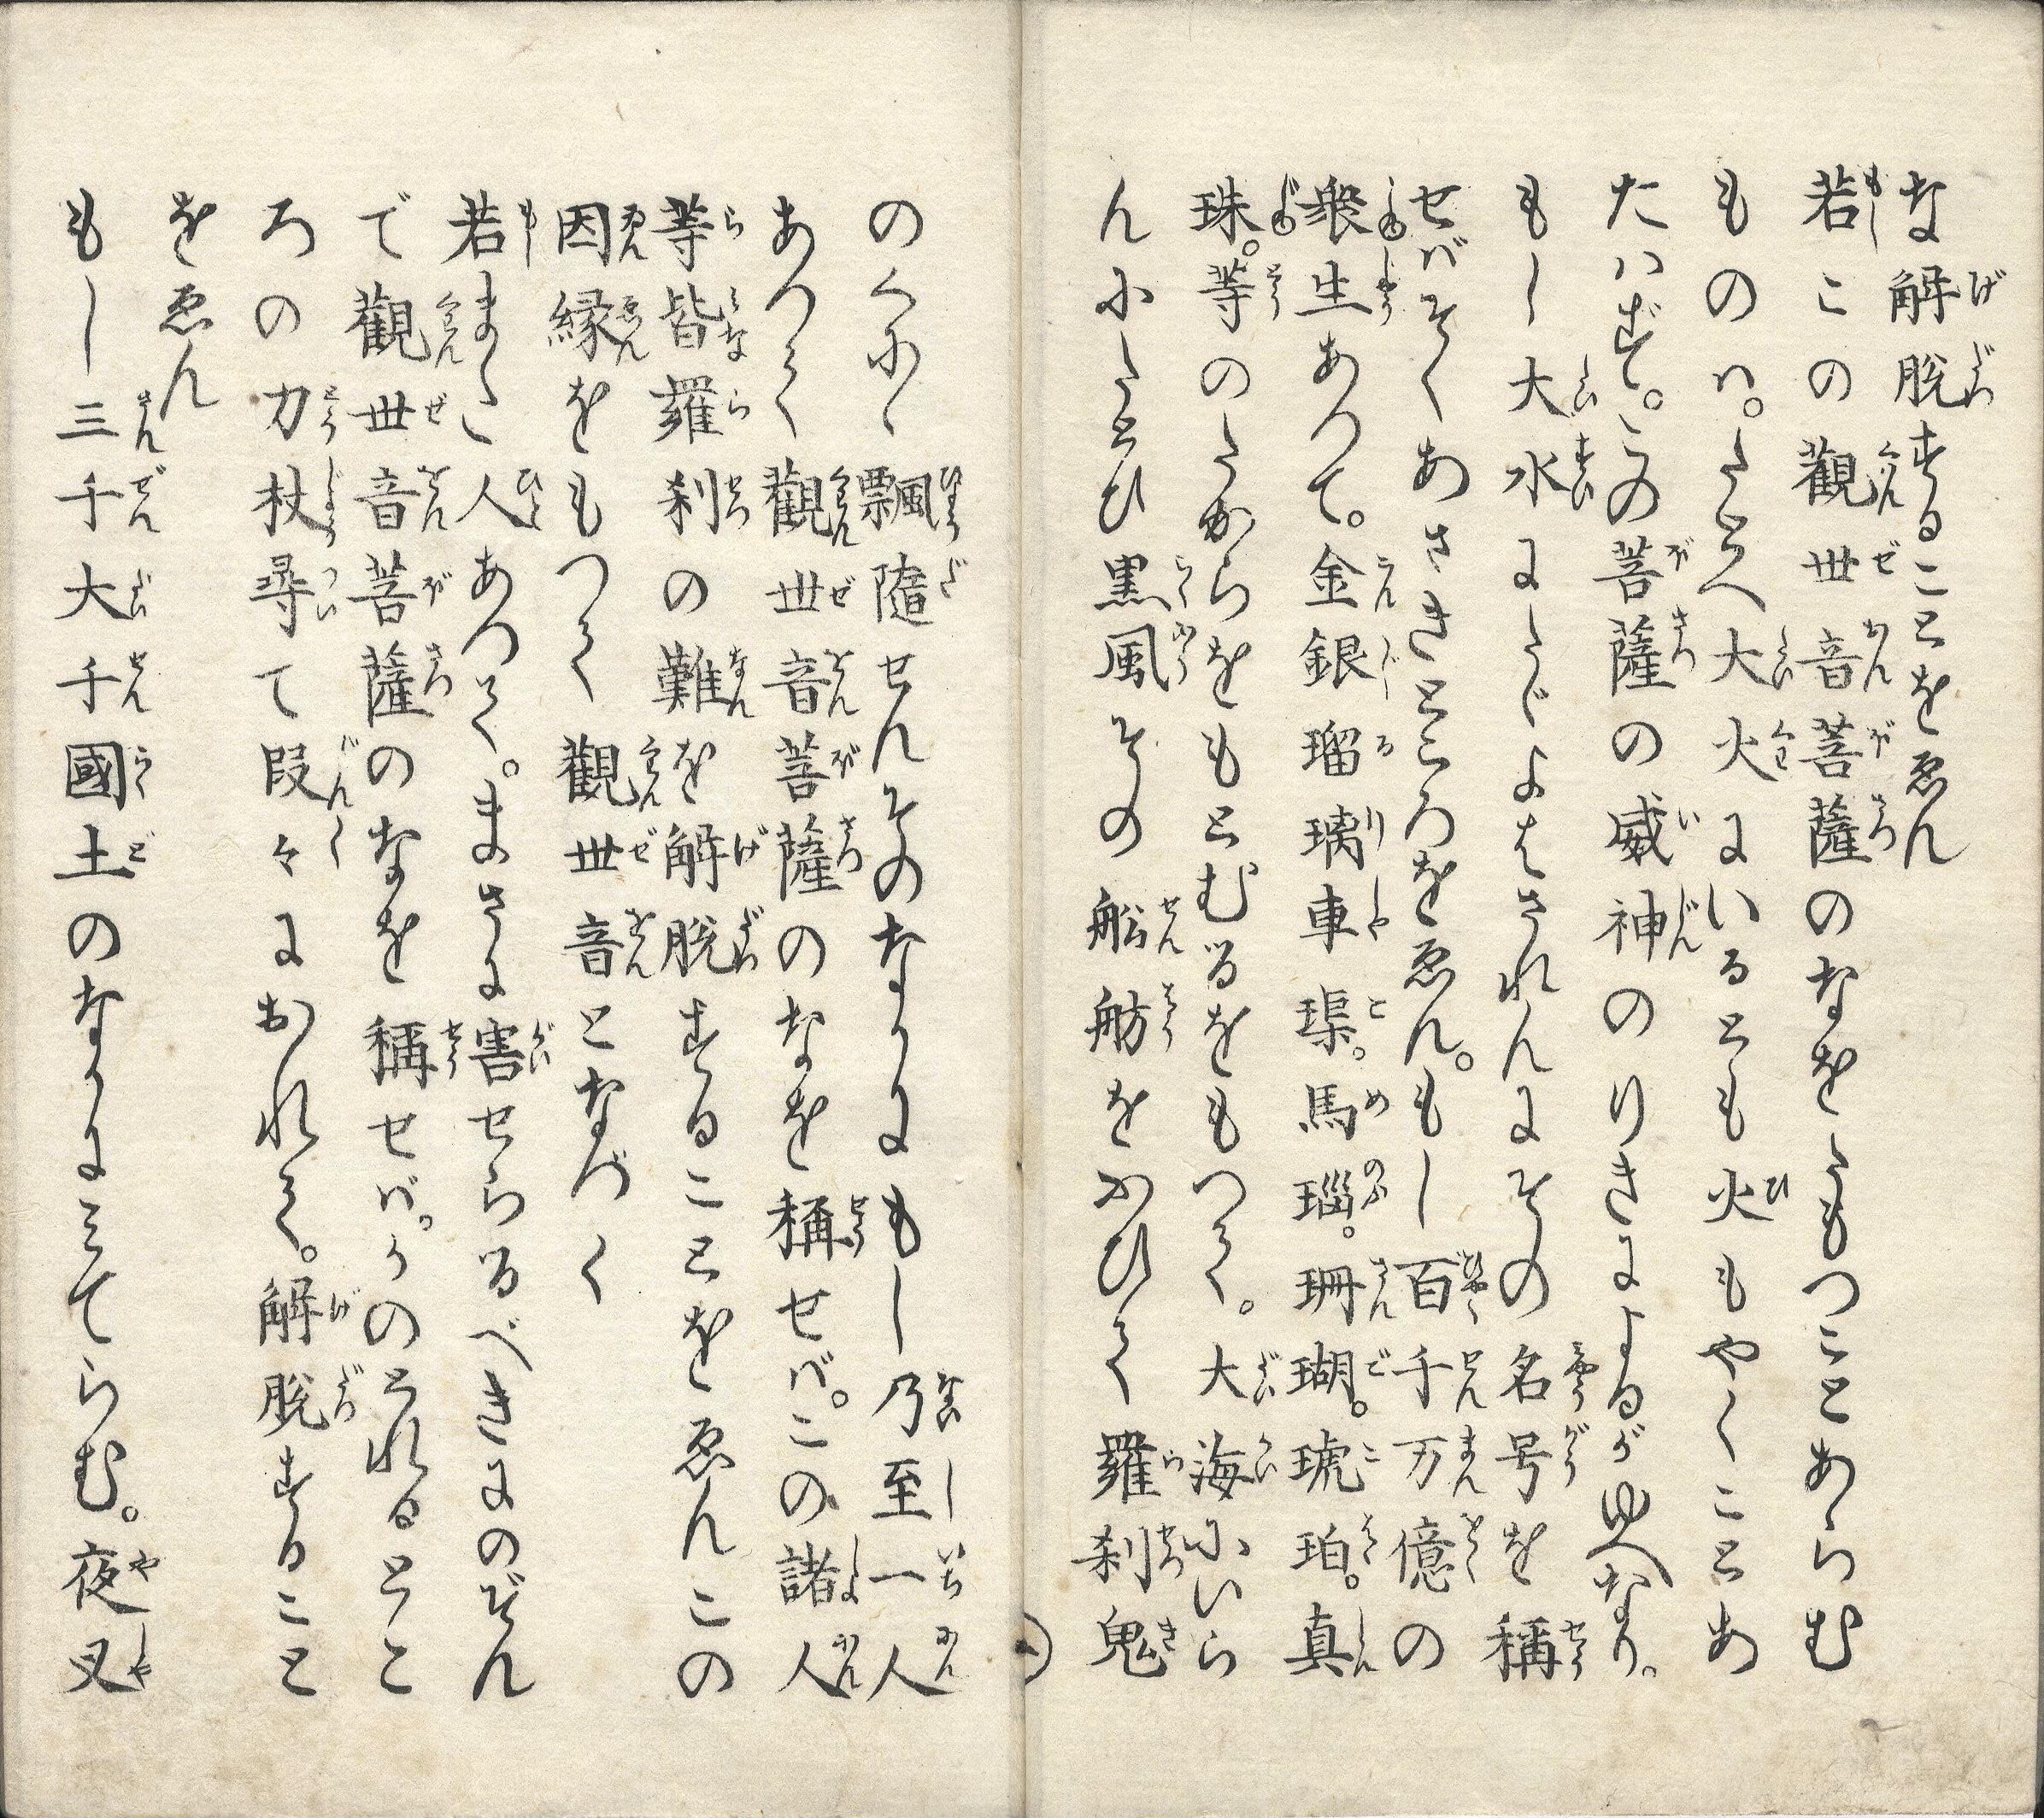 な解脱することをゑん
若この觀世音菩薩のなをたもつことあらむ
ものハ。たとへ大火にいるとも火もやくことあ
たハず。この菩薩の威神のりきによるがゆへなり。
もし大水にたゞよはされんにその名号を稱
せバそくあさきところをゑん。もし百千万億の
衆生あつて。金銀瑠璃車璖。馬瑙。珊瑚。琥珀。真
珠。等のたからをもとむるをもつて。大海にいら
んにたとひ黒風その舩舫をふひて羅刹鬼
のくにゝ飄墮せんそのなかにもし乃至一人
あつて觀世音菩薩のなを稱せバ。この諸人
等皆羅刹の難を解脱することをゑんこの
因縁をもつて觀世音となづく
若また人あつて。まさに害せらるべきにのぞん
で觀世音菩薩のなを稱せバ。かのとれるとこ
ろの刀杖尋て段々におれて。解脱すること
をゑん
もし三千大千國土のなかにみてらむ。夜叉